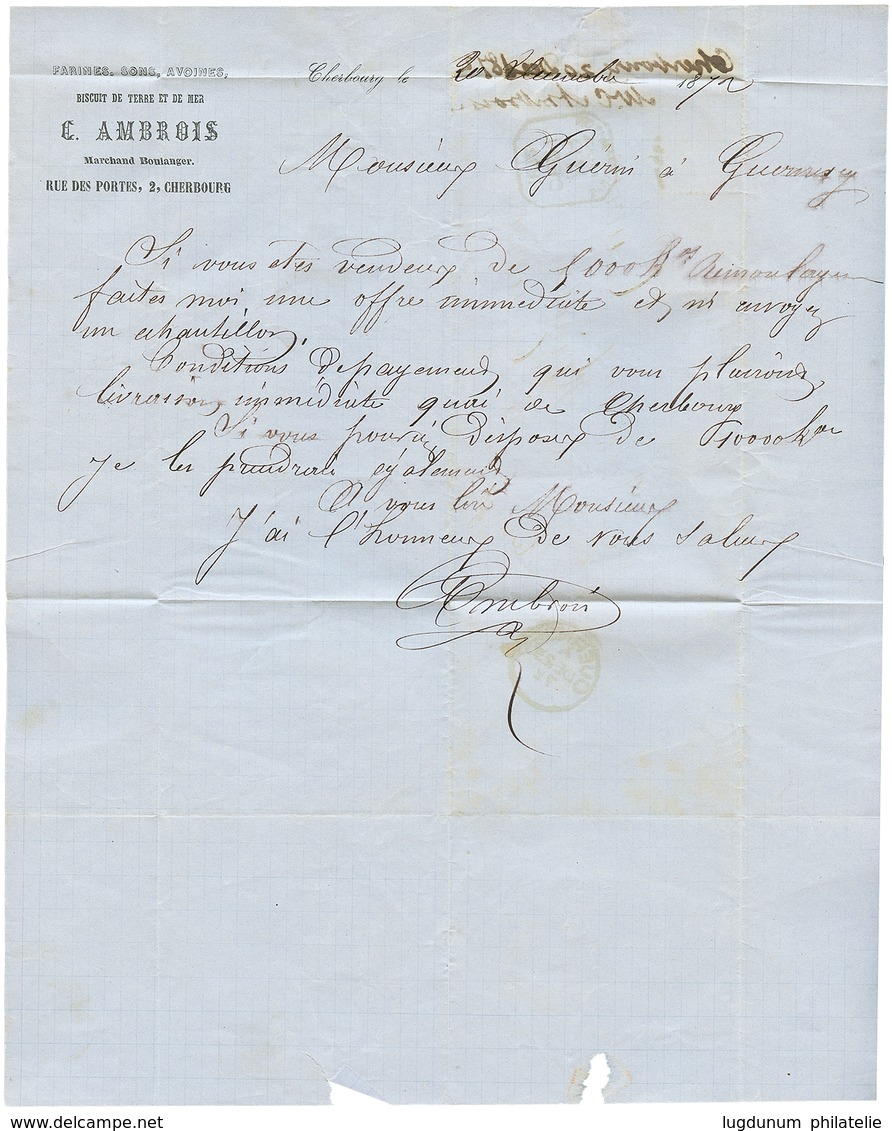 FARINES, SONS, AVOINES,
BISCUIT DE TERRE ET DE MER
C. AMBROIS
Marchand Boulanger.
RUE DES PORTES, 2, CHERBOURG
Cherbourg le 20 Décembre 1872
Monsieur Guérin à Guernesey
Si vous etes vendeur de 5000 Ks Remoulage
faites moi une offre immédiate et m'envoyez
un echantillon,
Conditions de payement qui vous plairont,
livraison immédiate quai de Cherbourg
Si vous pouviez disposer de 10000 K
Je les prendrai également
A vous lire Monsieur
J'ai l'honneur de vous saluer
Ambrois
delcampe.net
lugdunum philatelie